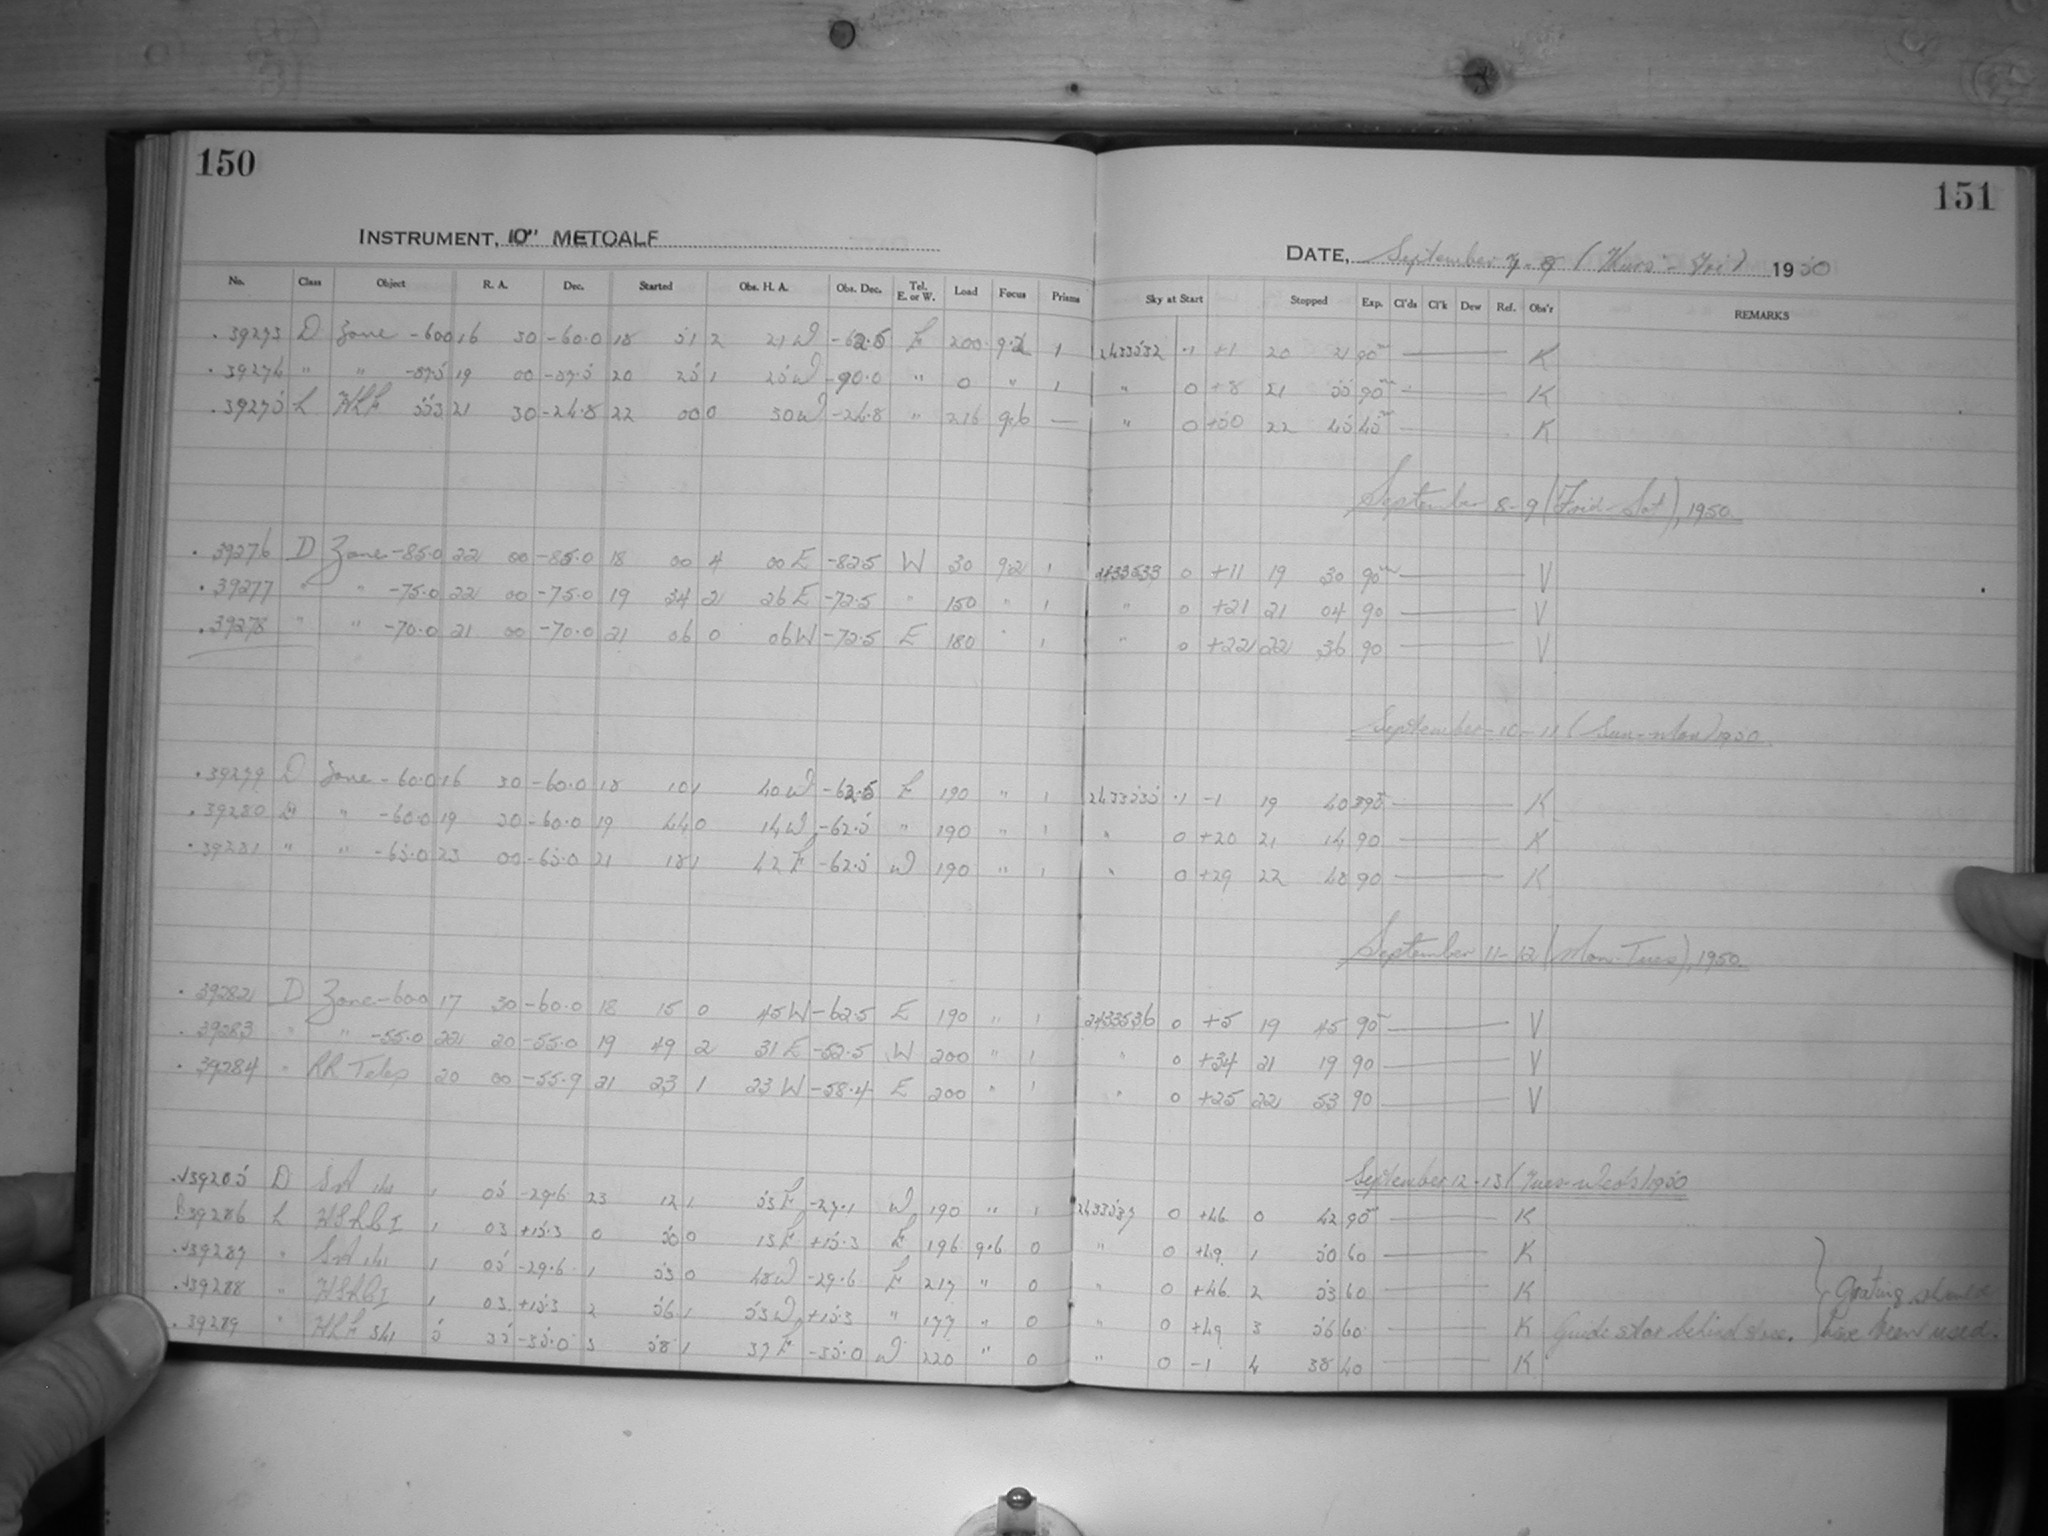 150
151
INSTRUMENT, 10" METCALF
DATE, September 7-8 (Thurs - Fri) 1950
No. Class Object R. A. Dec. Started Obs. H. A. Obs. Dec. Tel. E. or W. Load Focus Prisms Sky at Start Stopped Exp. Cl'ds Cl'k Dew Ref. Obs'r REMARKS
.39273 D Zone -60.0 16 30 -60.0 18 51 2 21 W -62.5 E 200 9.2 1 2433532 .1 +1 20 21 90m K
.39274 " " -87.5 19 00 -87.5 20 25 1 25 W -90.0 " 0 " 1 " 0 +8 21 55 90m K
.39275 L 553 21 30 -24.8 22 00 0 30 W -24.8 " 216 9.6 — " 0 +50 22 45 45m K
September 8-9 (Frid-Sat), 1950
.39276 D Zone -85.0 22 00 -85.0 18 00 4 00 E -82.5 W 30 9.2 1 2433533 0 +11 19 30 90m V
.39277 " " -75.0 22 00 -75.0 19 34 2 26 E -72.5 " 150 " 1 " 0 +21 21 04 90 V
.39278 " " -70.0 21 00 -70.0 21 06 0 06 W -72.5 E 180 " 1 " 0 +22 22 36 90 V
September 10-11 (Sun-Mon) 1950
.39279 D Zone -60.0 16 30 -60.0 18 10 1 40 W -62.5 E 190 " 1 2433535 .1 -1 19 40 K
.39280 " " -60.0 19 30 -60.0 19 44 0 14 W -62.5 " 190 " 1 " 0 +20 21 14 90 K
.39281 " " -65.0 23 00 -65.0 21 18 1 42 E -62.5 W 190 " 1 " 0 +29 22 48 90 K
September 11-12 (Mon-Tues), 1950
.39282 D Zone -60.0 17 30 -60.0 18 15 0 45 W -62.5 E 190 " 1 2433536 0 +5 19 45 90m V
.39283 " " -55.0 22 20 -55.0 19 49 2 31 E -52.5 W 200 " 1 " 0 +34 21 19 90 V
.39284 " RR Teles 20 00 -55.9 21 23 1 23 W -58.4 E 200 " 1 " 0 +25 22 53 90 V
September 12-13 (Tues-Weds) 1950
.√39285 D SA 141 1 05 -29.6 23 12 1 53 E -27.1 W 190 " 1 2433537 0 +46 0 42 90m K
39286 L 1 03 +15.3 0 50 0 13 E +15.3 E 196 9.6 0 " 0 +49 1 50 60 K
.√39287 " SA 141 1 05 -29.6 1 53 0 48 W -29.6 E 217 " 0 " 0 +46 2 53 60 K } Grating should
.√39288 " 1 03 +15.3 2 56 1 53 W +15.3 " 177 " 0 " 0 +49 3 56 60 K Guide star behind tree. have been used.
.39289 " 341 5 35 -35.0 3 58 1 37 E -35.0 W 220 " 0 " 0 -1 4 38 40 K